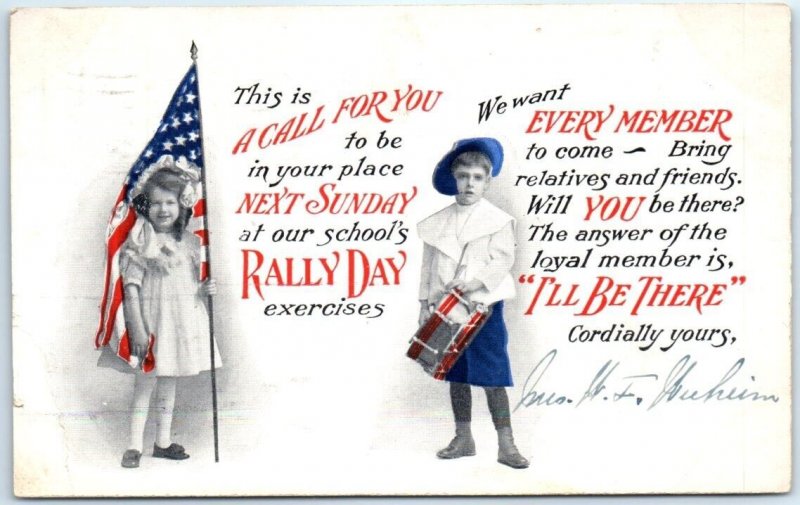 This is
A CALL FOR YOU
to be
in your place
NEXT SUNDAY
at our school's
RALLY DAY
exercises
We want
EVERY MEMBER
to come — Bring
relatives and friends.
Will YOU be there?
The answer of the
loyal member is,
"I'LL BE THERE"
Cordially yours,
Mrs. W. F.